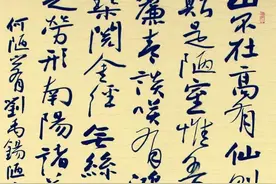 山不在高有仙則
斯是陋室惟吾
簾青談笑有鴻
琴閱金經無絲
之勞形南陽諸
何陋之有劉禹錫陋